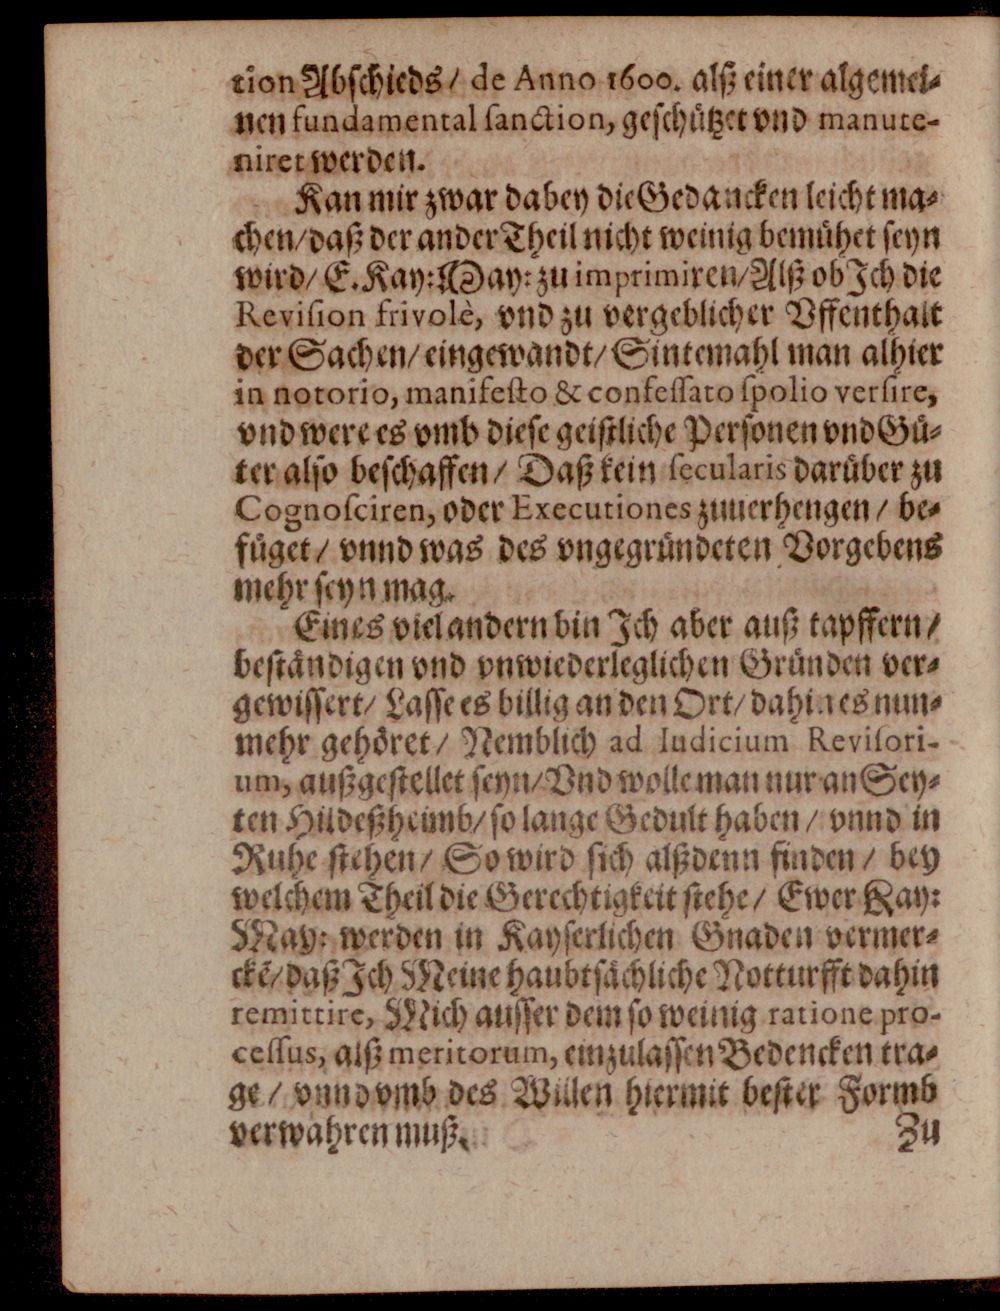 tion Abschieds / de Anno 1600. alß einer algemei-
nen fundamental sanction, geschützet vnd manute-
niret werden.
Kan mir zwar dabey die Gedancken leicht ma-
chen / daß der ander Theil nicht weinig bemühet seyn
wird / E. Kay: May: zu imprimiren / Alß ob Ich die
Revision frivolè, vnd zu vergeblicher Vffenthalt
der Sachen / eingewandt / Sintemahl man alhier
in notorio, manifesto & confessato spolio versire,
vnd were es vmb diese geistliche Personen vnd Gü-
ter also beschaffen / Daß kein secularis darüber zu
Cognosciren, oder Executiones zuuerhengen / be-
füget / vnnd was des vngegründeten Vorgebens
mehr seyn mag.
Eines viel andern bin Ich aber auß tapffern /
beständigen vnd vnwiederleglichen Gründen ver-
gewissert / Lasse es billig an den Ort / dahin es nun-
mehr gehöret / Nemblich ad Iudicium Revisori-
um, außgestellet seyn / Vnd wolle man nur an Sey-
ten Hildeßheimb / so lange Gedult haben / vnnd in
Ruhe stehen / So wird sich alßdenn finden / bey
welchem Theil die Gerechtigkeit stehe / Ewer Kay:
May: werden in Kayserlichen Gnaden vermer-
ckē / daß Ich Meine haubtsächliche Notturfft dahin
remittire, Mich ausser dem so weinig ratione pro-
cessus, alß meritorum, einzulassen Bedencken tra-
ge / vnnd vmb des Willen hiermit bester Formb
verwahren muß.
Zu